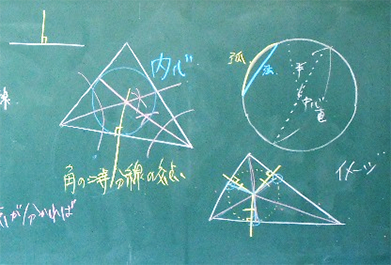 内心
弧
弦
中心
角
イメージ
線
角の二等分線の交点
が分かれば